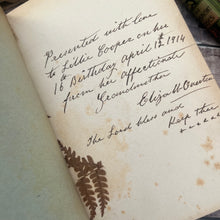 Presented with love
to Lillie Cooper on her
16th Birthday April 12th 1914
from her affectionate
Grandmother
Elizath
The Lord bless and
Keep thee